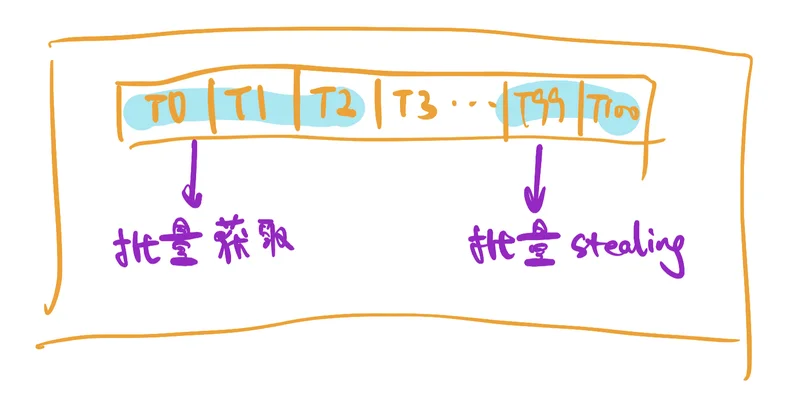 T0 T1 T2 T3 ... T99 T100
批量获取
批量 stealing